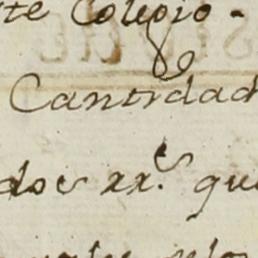 ste Colegio.
Cantidad
dos xx.s que